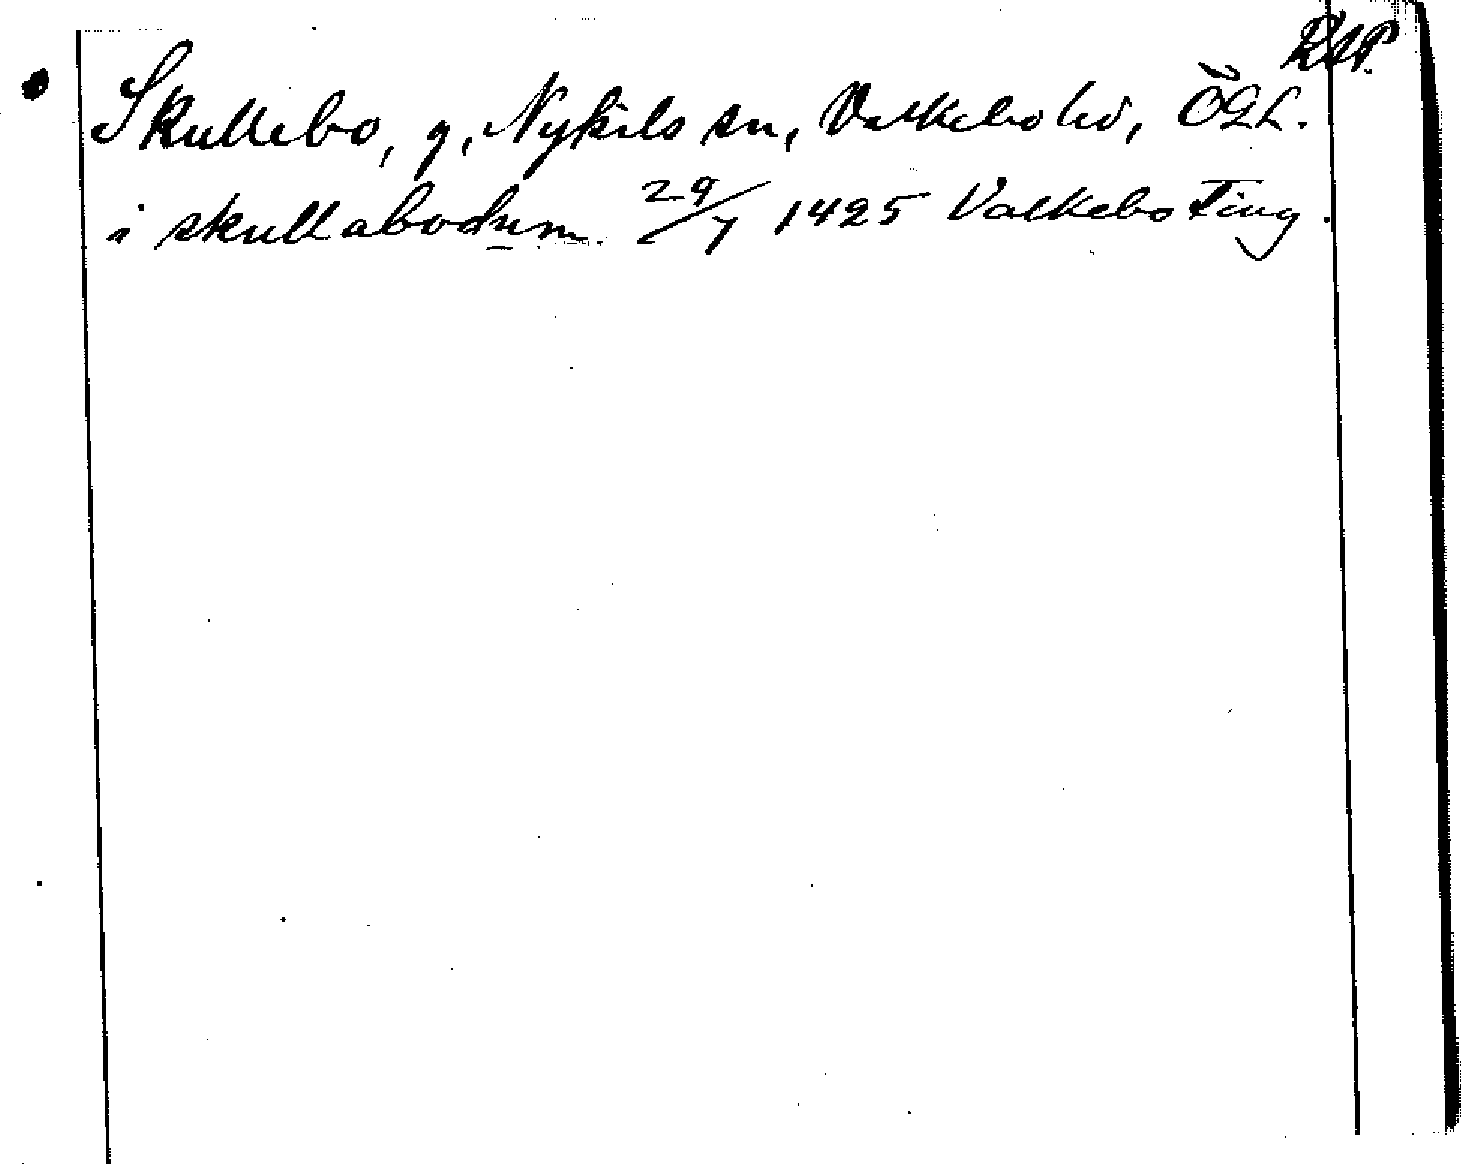 RAP.
Skullebo, g, Nykils sn, Valkebo hd, ÖGL.
i skullabodum 29/7 1425 Valkebo ting.